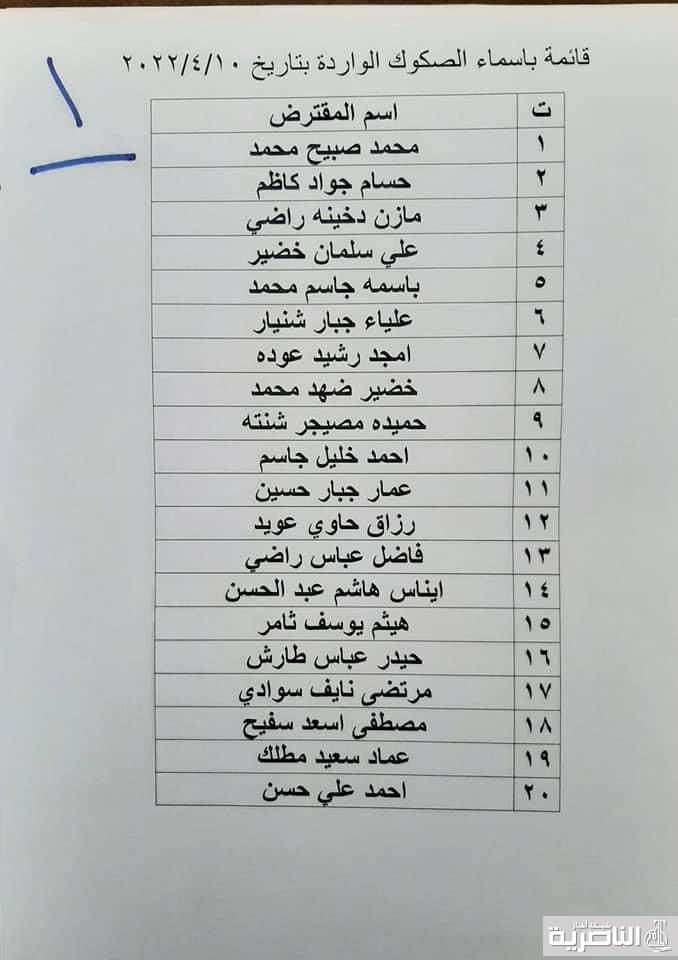 قائمة باسماء الصكوك الواردة بتاريخ ٢٠٢٢/٤/١٠
١
ت اسم المقترض
١ محمد صبيح محمد
٢ حسام جواد كاظم
٣ مازن دخينه راضي
٤ علي سلمان خضير
٥ باسمه جاسم محمد
٦ علياء جبار شنيار
٧ امجد رشيد عوده
٨ خضير ضهد محمد
٩ حميده مصيجر شنته
١٠ احمد خليل جاسم
١١ عمار جبار حسين
١٢ رزاق حاوي عويد
١٣ فاضل عباس راضي
١٤ ايناس هاشم عبد الحسن
١٥ هيثم يوسف ثامر
١٦ حيدر عباس طارش
١٧ مرتضى نايف سوادي
١٨ مصطفى اسعد سفيح
١٩ عماد سعيد مطلك
٢٠ احمد علي حسن
شبكة اخبار
الناصرية